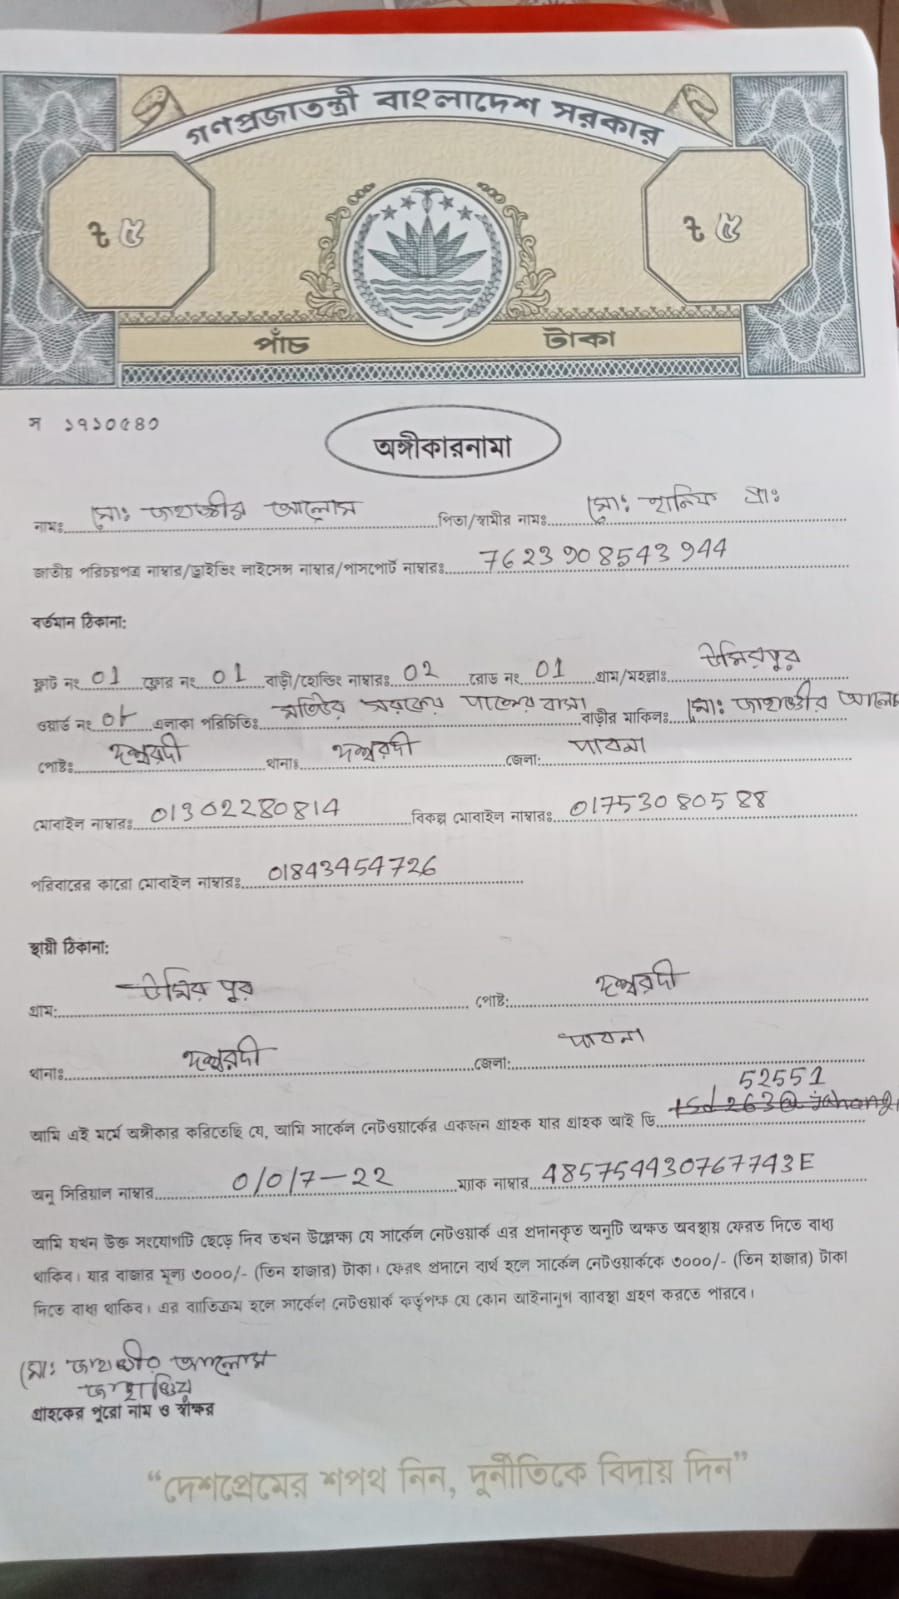 গণপ্রজাতন্ত্রী বাংলাদেশ সরকার
৳ ৫ ৳ ৫
পাঁচ টাকা
স ১৭১০৫৪০
অঙ্গীকারনামা
নামঃ মোঃ জাহাঙ্গীর আলোম পিতা/স্বামীর নামঃ মোঃ হানিফ প্রাঃ
জাতীয় পরিচয়পত্র নাম্বার/ড্রাইভিং লাইসেন্স নাম্বার/পাসপোর্ট নাম্বারঃ 7623908543944
বর্তমান ঠিকানা:
ফ্লাট নং 01 ফ্লোর নং 01 বাড়ী/হোল্ডিং নাম্বারঃ 02 রোড নং 01 গ্রাম/মহল্লাঃ
ওয়ার্ড নং এলাকা পরিচিতিঃ পাসের বাসা বাড়ীর মালিকঃ মোঃ জাহাঙ্গীর আলোম
পোষ্টঃ ঈশ্বরদী থানাঃ ঈশ্বরদী জেলা: পাবনা
মোবাইল নাম্বারঃ 01302280814 বিকল্প মোবাইল নাম্বারঃ 01753080588
পরিবারের কারো মোবাইল নাম্বারঃ 01843454726
স্থায়ী ঠিকানা:
গ্রাম: পোষ্ট: ঈশ্বরদী
থানাঃ ঈশ্বরদী জেলা: পাবনা
52551
আমি এই মর্মে অঙ্গীকার করিতেছি যে, আমি সার্কেল নেটওয়ার্কের একজন গ্রাহক যার গ্রাহক আই ডি
অনু সিরিয়াল নাম্বার 0/0/7-22 ম্যাক নাম্বার 485754430767743E
আমি যখন উক্ত সংযোগটি ছেড়ে দিব তখন উল্লেক্ষ্য যে সার্কেল নেটওয়ার্ক এর প্রদানকৃত অনুটি অক্ষত অবস্থায় ফেরত দিতে বাধ্য
থাকিব। যার বাজার মূল্য ৩০০০/- (তিন হাজার) টাকা। ফেরৎ প্রদানে ব্যর্থ হলে সার্কেল নেটওয়ার্ককে ৩০০০/- (তিন হাজার) টাকা
দিতে বাধ্য থাকিব। এর ব্যতিক্রম হলে সার্কেল নেটওয়ার্ক কর্তৃপক্ষ যে কোন আইনানুগ ব্যবস্থা গ্রহণ করতে পারবে।
মোঃ জাহাঙ্গীর আলোম
গ্রাহকের পুরো নাম ও স্বীক্ষর
“দেশপ্রেমের শপথ নিন, দুর্নীতিকে বিদায় দিন”